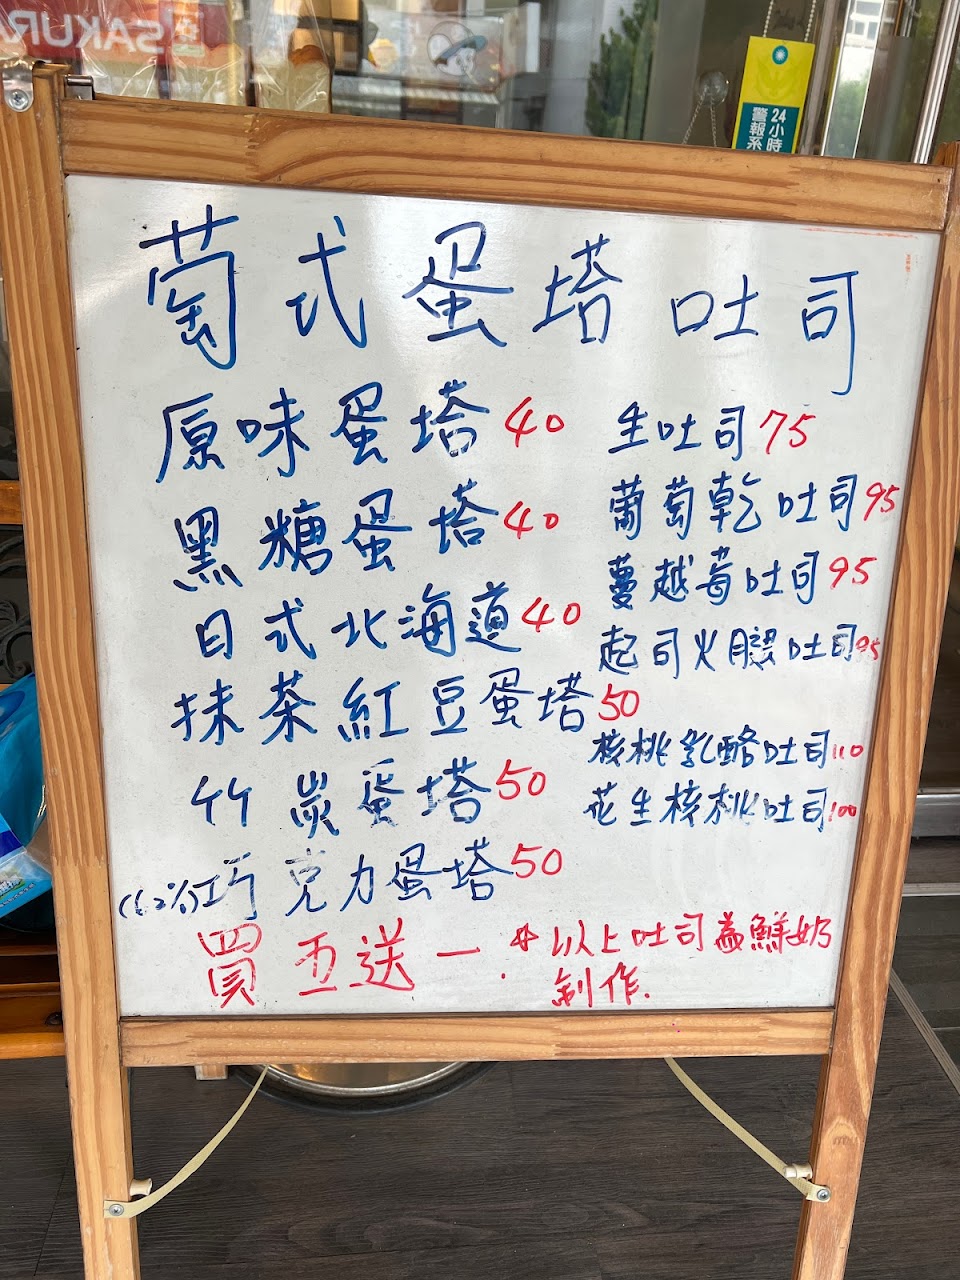 SAKURA
24小時
警報系
萄式蛋塔吐司
原味蛋塔40
黑糖蛋塔40
日式北海道40
抹茶紅豆蛋塔50
竹炭蛋塔50
(62%)巧克力蛋塔50
買五送一.
生吐司75
葡萄乾吐司95
蔓越莓吐司95
起司火腿吐司95
核桃乳酪吐司110
花生核桃吐司100
*以上吐司為鮮奶
製作.